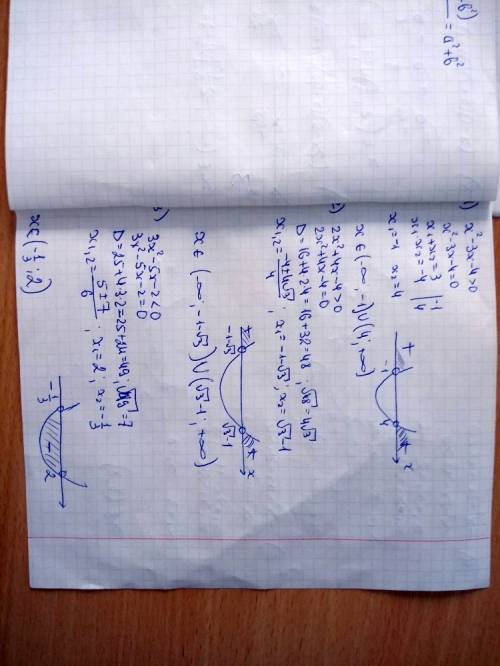 -b²)
= a²+b²
1) x²-3x-4>0
x²-3x-4=0
x₁+x₂=3 | -1
x₁·x₂=-4 | 4
x₁=-1 x₂=4
+ -1 - 4 + x
x∈(-∞;-1)∪(4;+∞)
2x²+4x-4>0
2x²+4x-4=0
D=16+4·2·4=16+32=48; √48=4√3
x₁,₂=-4±4√3/4; x₁=-1-√3; x₂=√3-1
+ -1-√3 - √3-1 + x
x∈(-∞;-1-√3)∪(√3-1;+∞)
3) 3x²-5x-2<0
3x²-5x-2=0
D=25+4·3·2=25+24=49; √49=7
x₁,₂=5±7/6; x₁=2; x₂=-1/3
-1/3 - 2
x∈(-1/3;2)